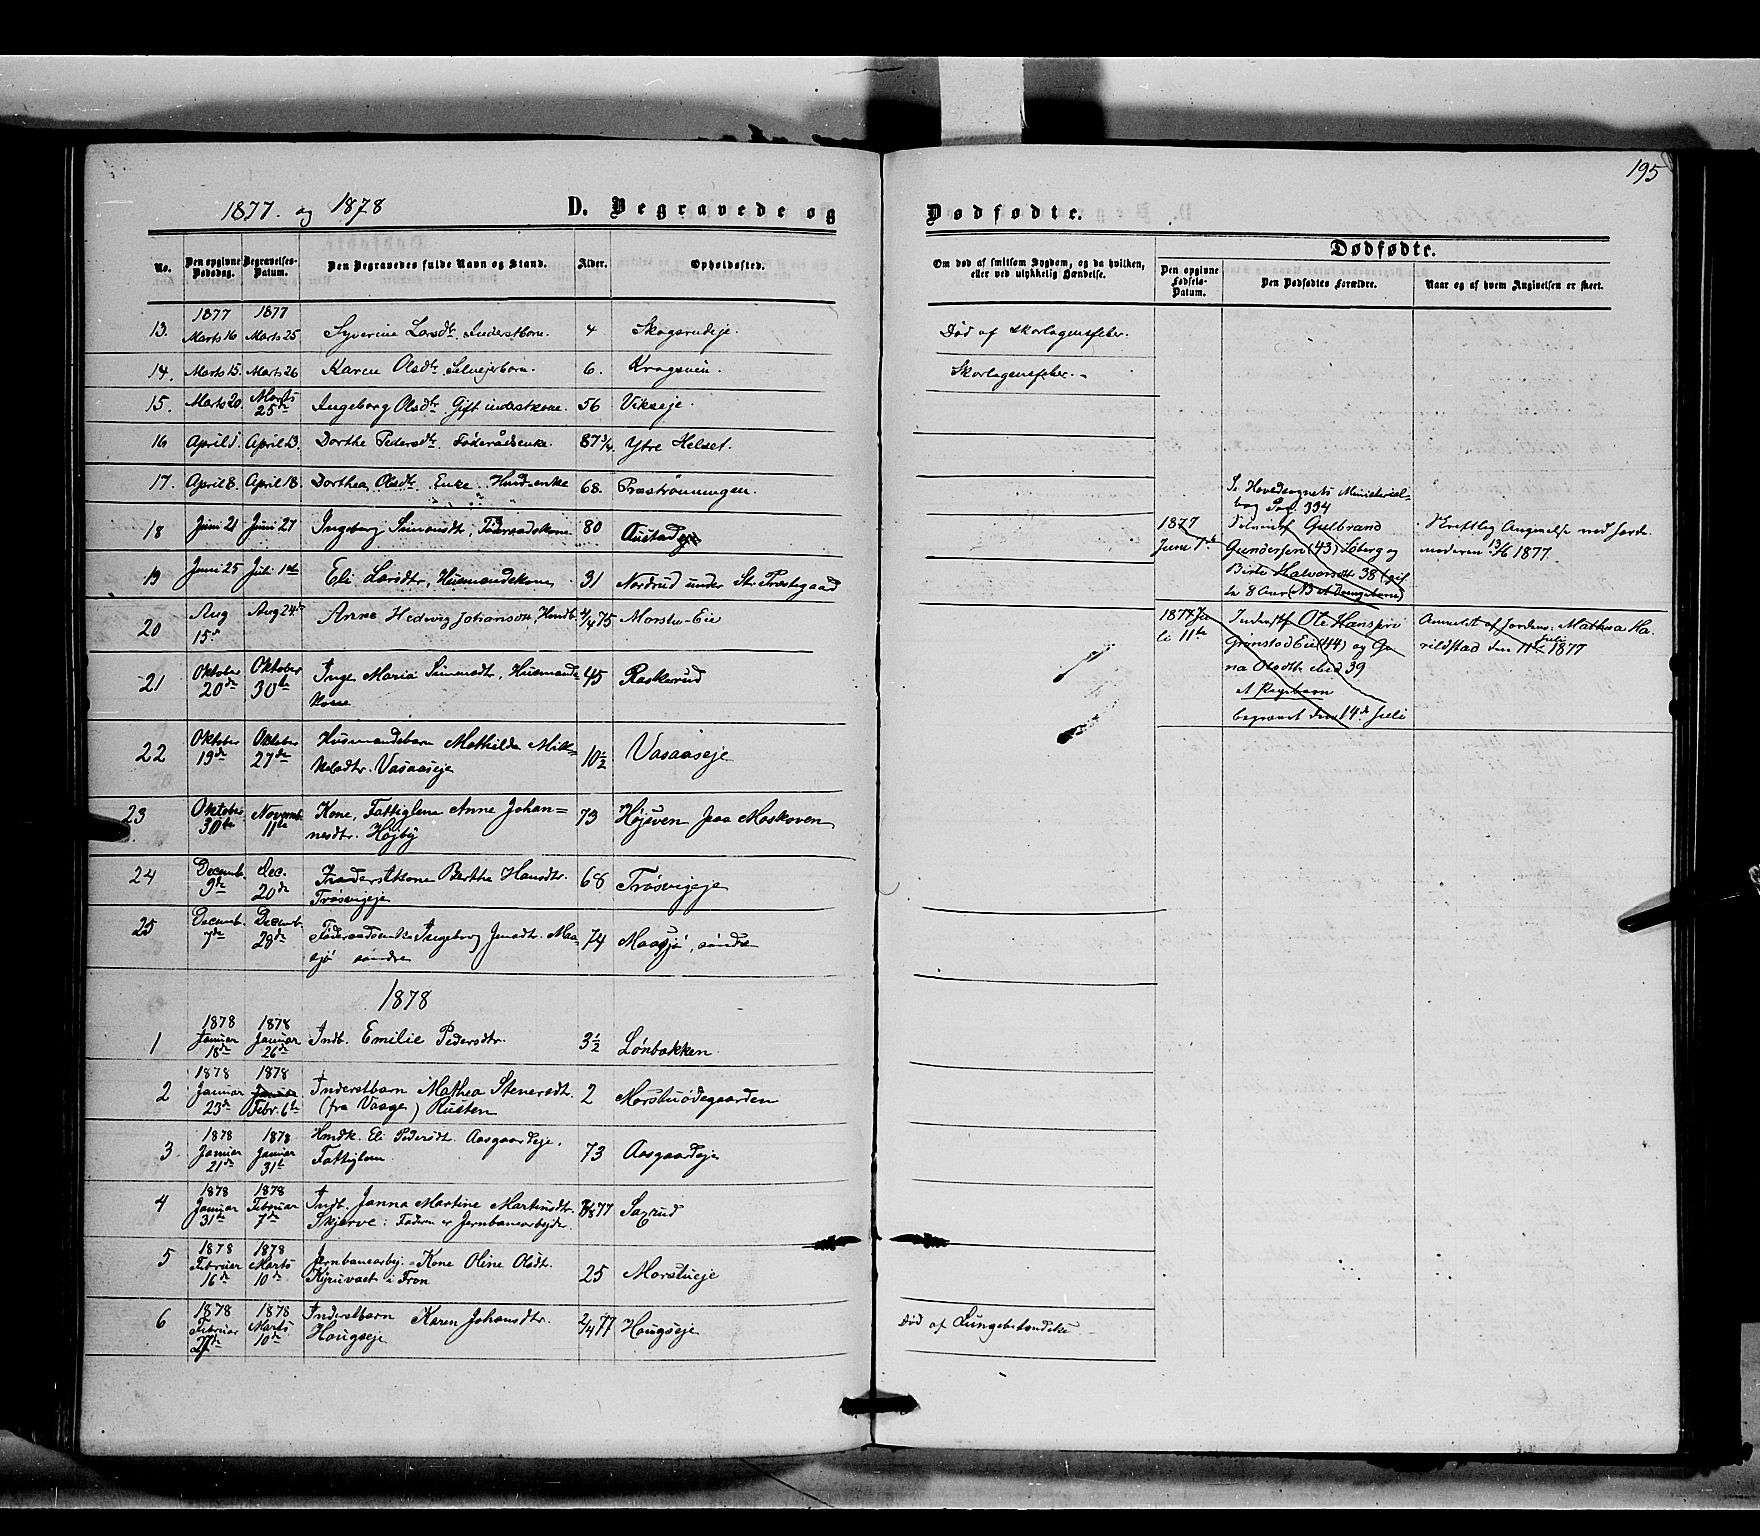 195
1877. og 1878 D. Begravede og Dødfødte.
No. Den opgivne Dødsdag. Begravelses-Datum. Den Begravedes fulde Navn og Stand. Alder. Opholdssted.
Om død af smitsom Sygdom, og da hvilken, eller ved ulykkelig Hændelse.
Dødfødte.
Den opgivne Fødsels-Datum. Den Dødfødtes Forældre. Naar og af hvem Angivelsen er skeet.
1877 1877
13. Marts 16 Marts 25 Syverine Larsdtr. Inderstborn. 4 Skogsrudeje. Død af Skarlagensfeber.
14. Marts 15. Marts 26 Karen Olsdtr. Selvejerborn. 6. Kragsven. Skarlagensfeber. -
15. Marts 20. Marts 25de Ingeborg Olsdtr. Gift inderstkone. 56 Vikseje.
16 April 1. April 13. Dorthe Pedersdtr. Føderådsenke. 87 3/4. Ytre Helset.
17. April 8. April 18. Dorthea Olsdtr. Enke. Husdsenke 68. Præstrønningen.
18 Juni 21 Juni 27 Ingeborg Simonsdtr, Føderaadskone 80 Austadeje
19 Juni 25 Juli 1ste Eli Larsdtr, Husmandskone 31 Nordrud under St. Præstegaard
20 Aug 15de Aug 24de Anne Hedevig Johansdtr, Husdb. 4/4 75 Morstu-Eie
21 Oktober 20de Oktober 30te Inge Maria Simensdtr, Husmands-
kone 45 Raskerud
22 Oktober 19de Oktober 27de Husmandsbarn Mathilde Mik-
kelsdtr. Vasaaseje 10 1/2 Vasaaseje
23 Oktober 30te Novemb. 11te Kone, Fattiglem Anne Johan-
nesdtr. Højby 73 Højsven paa Moskoven
24 Decemb. 9de Dec. 20de Inderstkone Berthe Hansdtr.
Trøsvigeje 68 Trøsvigeje
25 Decemb. 7de Decemb. 28de Føderaadsenke Ingeborg Jensdtr. Maa-
sjø søndre 74 Maasjø, søndre
Se Hovedsognets Ministerial-
bog Pag. 334
1877
Juni 1ste
Gulbrand
Gundersen (43) Løberg og
Birte Halvorsdtr 38 (gif-
te 8 Aar)
Skriftlig Angivelse ved Jorde-
moderen 13/6 1877.
1877 Ju-
li 11te
Inderst Ole Hans
Grønstad Eie (44) og Gu-
na Olsdtr ibid 39
Et Pigebarn
begravet den 14de Juli
Anmeldt af Jordem. Mathea Ha-
rildstad den 11te Juli 1877
1878
1 1878 Januar 18de 1878 Januar 26de Indb. Emilie Pedersdtr. 3 1/2 Lønbakken
2 1878 Januar 23de 1878 Januar Febr. 6te Inderstbarn Mathea Stenersdtr.
(fra Vaage) Rusten 2 Morstuødegaarden
3 1878 Januar 21de 1878 Januar 31te Hmdk. Eli Pedersdtr. Aasgaardeje,
Fattiglem 73 Aasgaardeje
4 1878 Januar 31te 1878 Februar 7de Indb. Janna Martine Martinsdtr.
Skjerve: Faderen er Jernbanearbejder 1877 Saxrud
5 1878 Februar 16de 1878 Marts 10de Jernbanearbj.-Kone Oline Olsdt.
i Fron 25 Morstueje
6 1878 Februar 27de 1878 Marts 10de Inderstbarn Karen Johansdtr.
Haugseje 2/4 77 Haugseje Død af Lungebetændelse